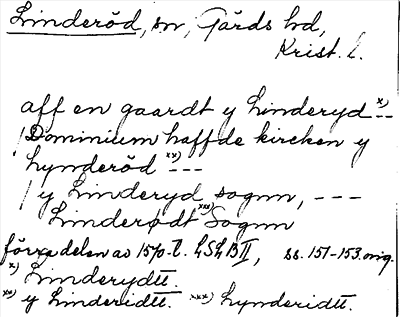 Linderöd, sn, Gärds hd,
Krist. l.
aff en gaardt y Linderyd x) ---
/ Dominium haffde kircken y
Lynderöd xx) ---
/ y Linderyd sognn, ---
Linderødt xxx) Sognn
förra delen av 1570-t. LSLBII, ss. 151-153. orig.
x) Linderydtt.
xx) y Linderidtt. xxx) Lynderidtt.